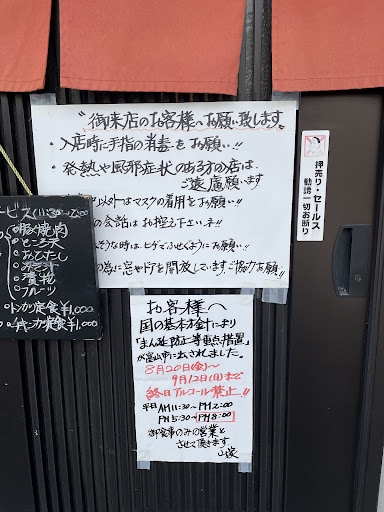 御来店のお客様へお願い致します
・入店時に手指の消毒をお願い!!
・発熱や風邪症状のある方の店は、
ご遠慮願います
以外はマスクの着用をお願い!!
の会話はお控え下さいネ!!
そうな時はヒジでふせぐようにお願い!!
の為に窓やドアを開放しています。ご協力お願い!!
押売り・セールス
勧誘一切お断り
ービス(11:30〜2:00
焼肉
ところ天
おひたし
漬物
フルーツ
トンカツ定食¥1,000
定食¥1,000
お客様へ
国の基本方針により
「まん延防止等重点措置」
が富山市に出されました。
8月20日(金)〜
9月12日(日)まで
終日アルコール禁止!!
平日AM11:30〜PM2:00
PM5:30〜PM8:00
御食事のみの営業と
させて頂きます